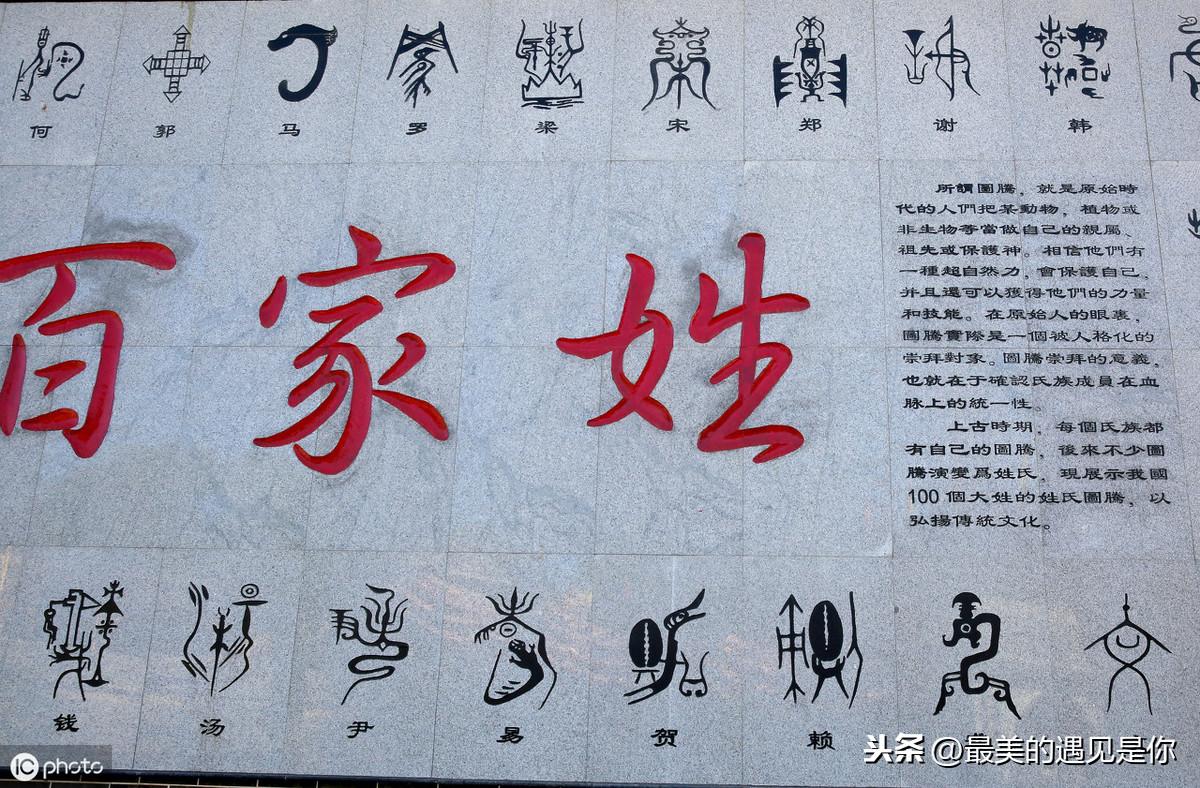 何 郭 马 罗 梁 宋 郑 谢 韩
百家姓
所謂圖騰，就是原始時
代的人們把某動物，植物或
非生物等當做自己的親屬、
祖先或保護神。相信他們有
一種超自然力，會保護自己，
并且還可以獲得他們的力量
和技能。在原始人的眼裏，
圖騰實際是一個被人格化的
崇拜對象。圖騰崇拜的意義，
也就在于確認氏族成員在血
脉上的統一性。
上古時期，每個氏族都
有自己的圖騰，後來不少圖
騰演變爲姓氏，現展示我國
100個大姓的姓氏圖騰，以
弘揚傳統文化。
钱 汤 尹 易 贺 赖
头条 @最美的遇见是你
IC photo